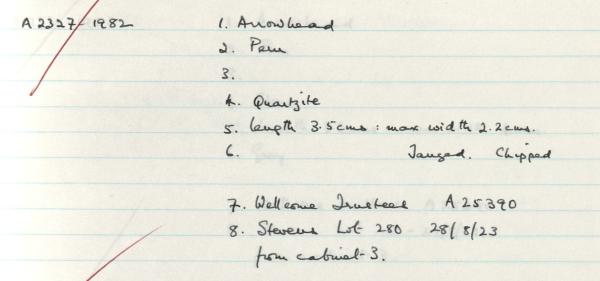 A 2327-1982 1. Arrowhead
2. Peru
3.
4. Quartzite
5. length 3.5cms : max width 2.2cms.
6. Tanged. Chipped
7. Wellcome Trustees A 25390
8. Stevens Lot 280 - 28/8/23
from cabinet 3.